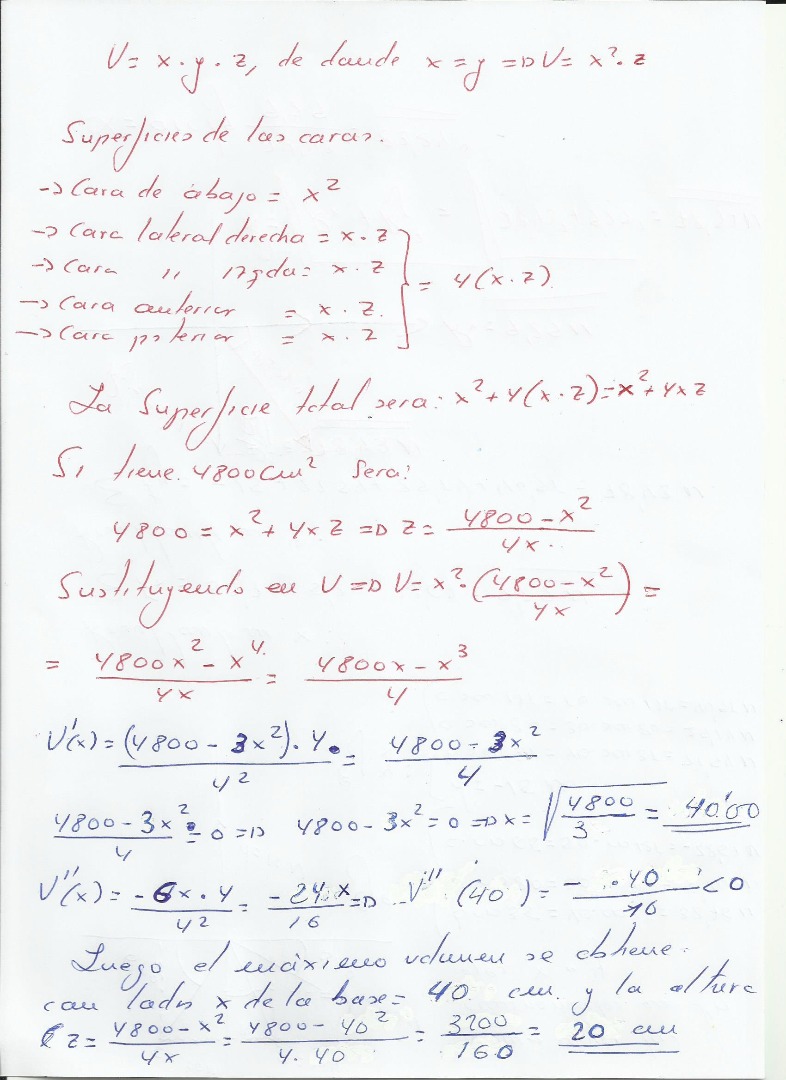 V = x · y · z, de donde x = y => V = x² · z
Superficies de las caras.
-> Cara de abajo = x²
-> Cara lateral derecha = x · z
-> Cara " izqda = x · z } = 4(x · z).
-> Cara anterior = x · z.
-> Cara posterior = x · z
La Superficie total sera: x² + 4(x · z) = x² + 4xz
Si tiene 4800 cm² Sera:
4800 = x² + 4xz => z = (4800 - x²)/(4x)
Sustituyendo en V => V = x² · ((4800 - x²)/(4x)) =
= (4800x² - x⁴)/(4x) = (4800x - x³)/4
V'(x) = ((4800 - 3x²) · 4)/4² = (4800 - 3x²)/4
(4800 - 3x²)/4 = 0 => 4800 - 3x² = 0 => x = √(4800/3) = 40'00
V''(x) = (-6x · 4)/4² = (-24x)/16 => V'' (40) = (- · 40)/16 < 0
Luego el máximo volumen se obtiene
con lados x de la base = 40 cm. y la altura
z = (4800 - x²)/(4x) = (4800 - 40²)/(4 · 40) = 3200/160 = 20 cm